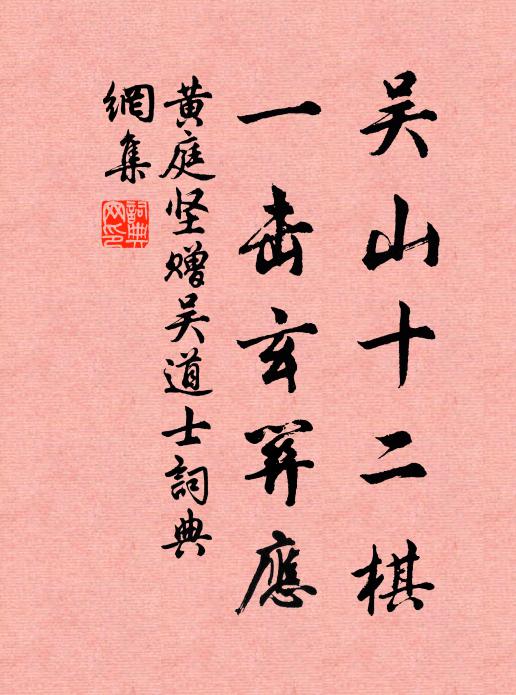 吴山十二棋
一击玄算應
黄庭坚赠吴道士詞典
網集
詞典
網印